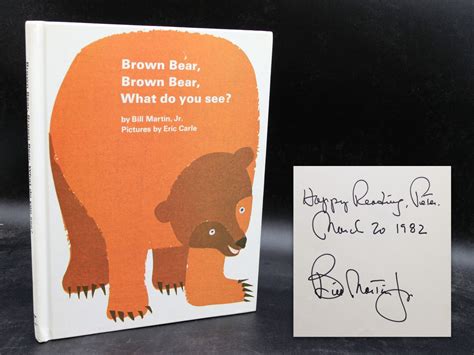 Brown Bear,
Brown Bear,
What do you see?
by Bill Martin, Jr.
Pictures by Eric Carle
Happy Reading, Peter.
March 20 1982
Bill Martin Jr